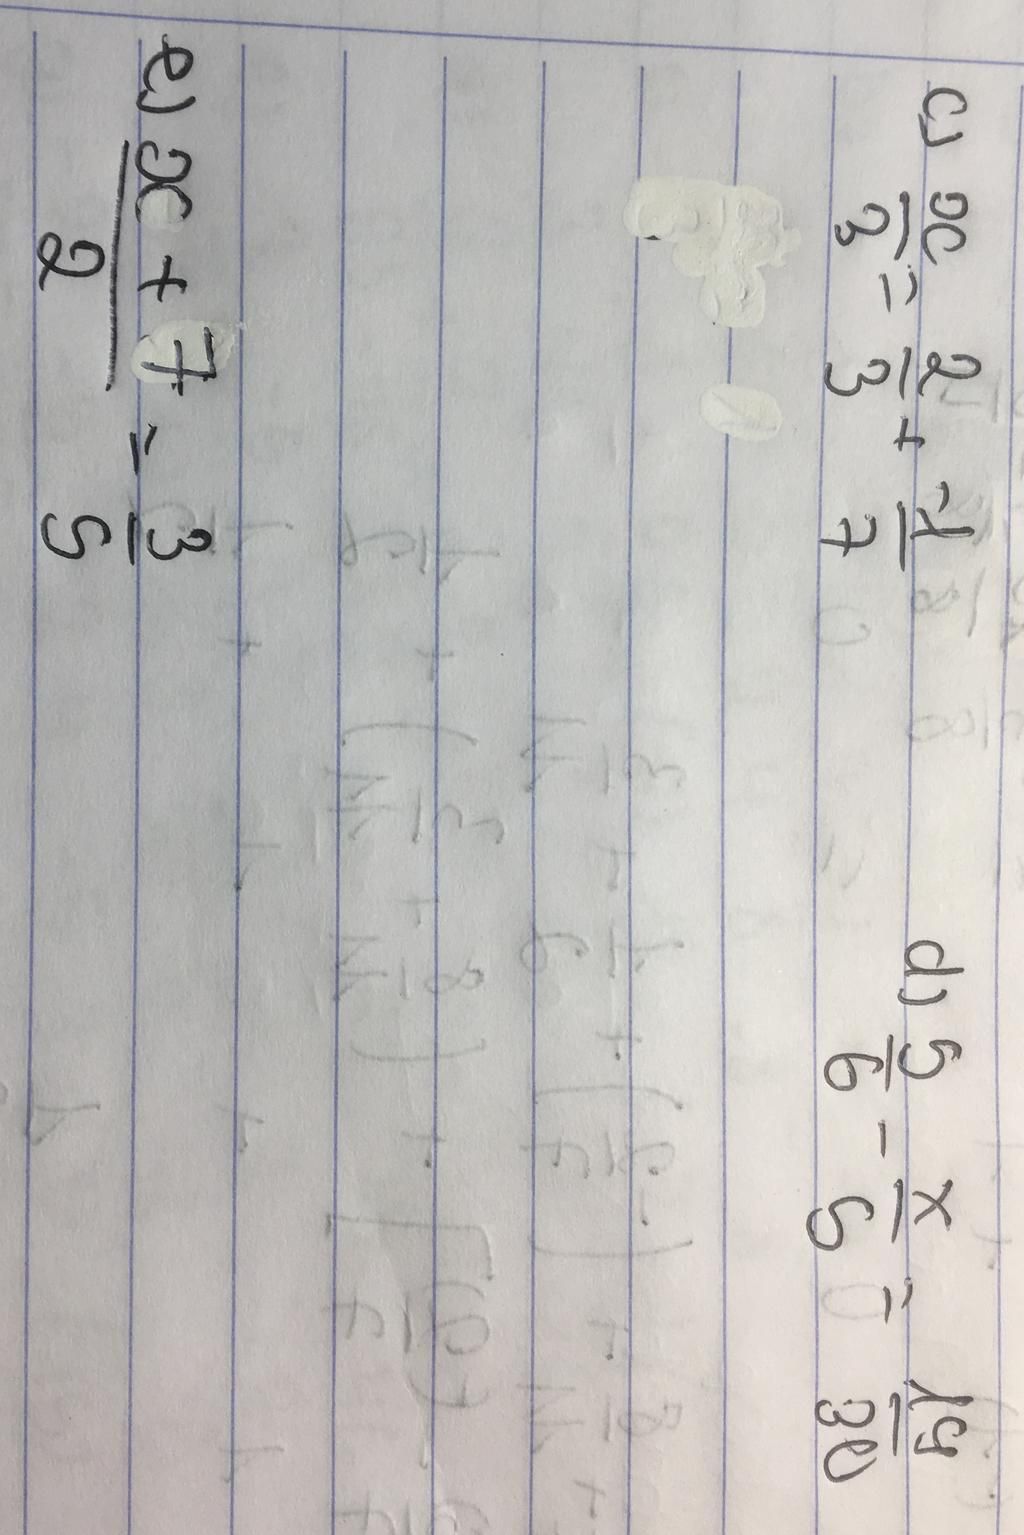 c) x/3 = 2/3 + -1/7 d) 5/6 - x/5 = 19/30
e) x + 7/2 = 3/5